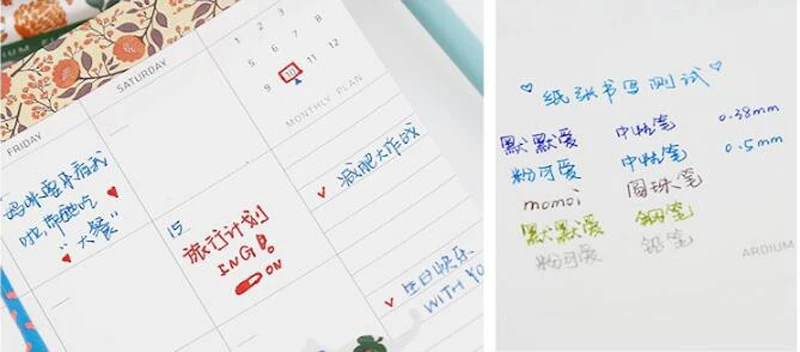 SATURDAY
FRIDAY
1 2 3
4 5 6 7 8
9 10 11
MONTHLY PLAN
妈咪要来看我
啦,带她吃
“大餐”
15
旅行计划
ING!
ON
减肥大作战
生日快乐
WITH YO
纸张书写测试
默默爱 中性笔 0.38mm
粉可爱 中性笔 0.5mm
momoi 圆珠笔
默默爱 钢笔
粉可爱 铅笔
ARDIUM